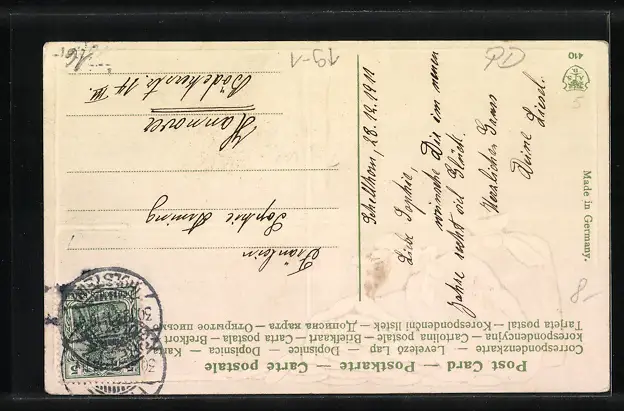 Post Card — Postkarte — Carte postale
Correspondenzkarte — Levelező Lap — Dopisnice — Dopisnica — Karta
korespondencyjna — Cartolina postale — Briefkaart — Carta postala — Brefkort
Tarjeta postal — Korespondenčni listek — Дописна карта — Открытое письмо
Fräulein
Sophie
Hannover
Bödekerstr. 14 III
Schellhorn, 28.12.1911
Liebe Sophie,
wünsche Dir im neuen
Jahre recht viel Glück.
Herzlichen Gruss
Deine Liesel.
Made in Germany.
410
19-1
PD
5
8-
5